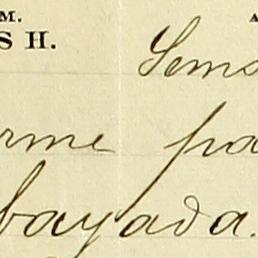 M. A
S H. Sems
rme pa
bayada.